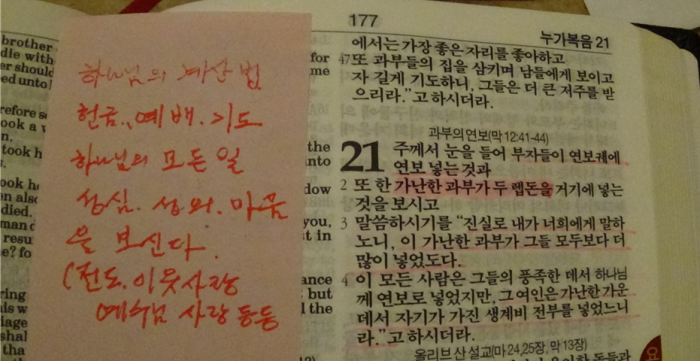 brother
die with
er should
ed unto
efore s
took a
n.
took h
ook h
n also
died.
resu
e? fo
ring
iage
shal
tha
하나님의 계산법
헌금, 예배, 기도
하나님의 모든 일
성심. 성의. 마음
을 보신다.
(전도. 이웃사랑
예수님 사랑 등등
for
me
the
into
dow
you,
t in
ance
but
d the
177
누가복음 21
에서는 가장 좋은 자리를 좋아하고
47 또 과부들의 집을 삼키며 남들에게 보이고
자 길게 기도하니, 그들은 더 큰 저주를 받
으리라.”고 하시더라.
과부의 연보(막 12:41-44)
21 주께서 눈을 들어 부자들이 연보궤에
연보 넣는 것과
2 또 한 가난한 과부가 두 렙돈을 거기에 넣는
것을 보시고
3 말씀하시기를 “진실로 내가 너희에게 말하
노니, 이 가난한 과부가 그들 모두보다 더
많이 넣었도다.
4 이 모든 사람은 그들의 풍족한 데서 하나님
께 연보로 넣었지만, 그 여인은 가난한 가운
데서 자기가 가진 생계비 전부를 넣었느니
라.”고 하시더라.
올리브 산 설교(마 24,25장, 막 13장)